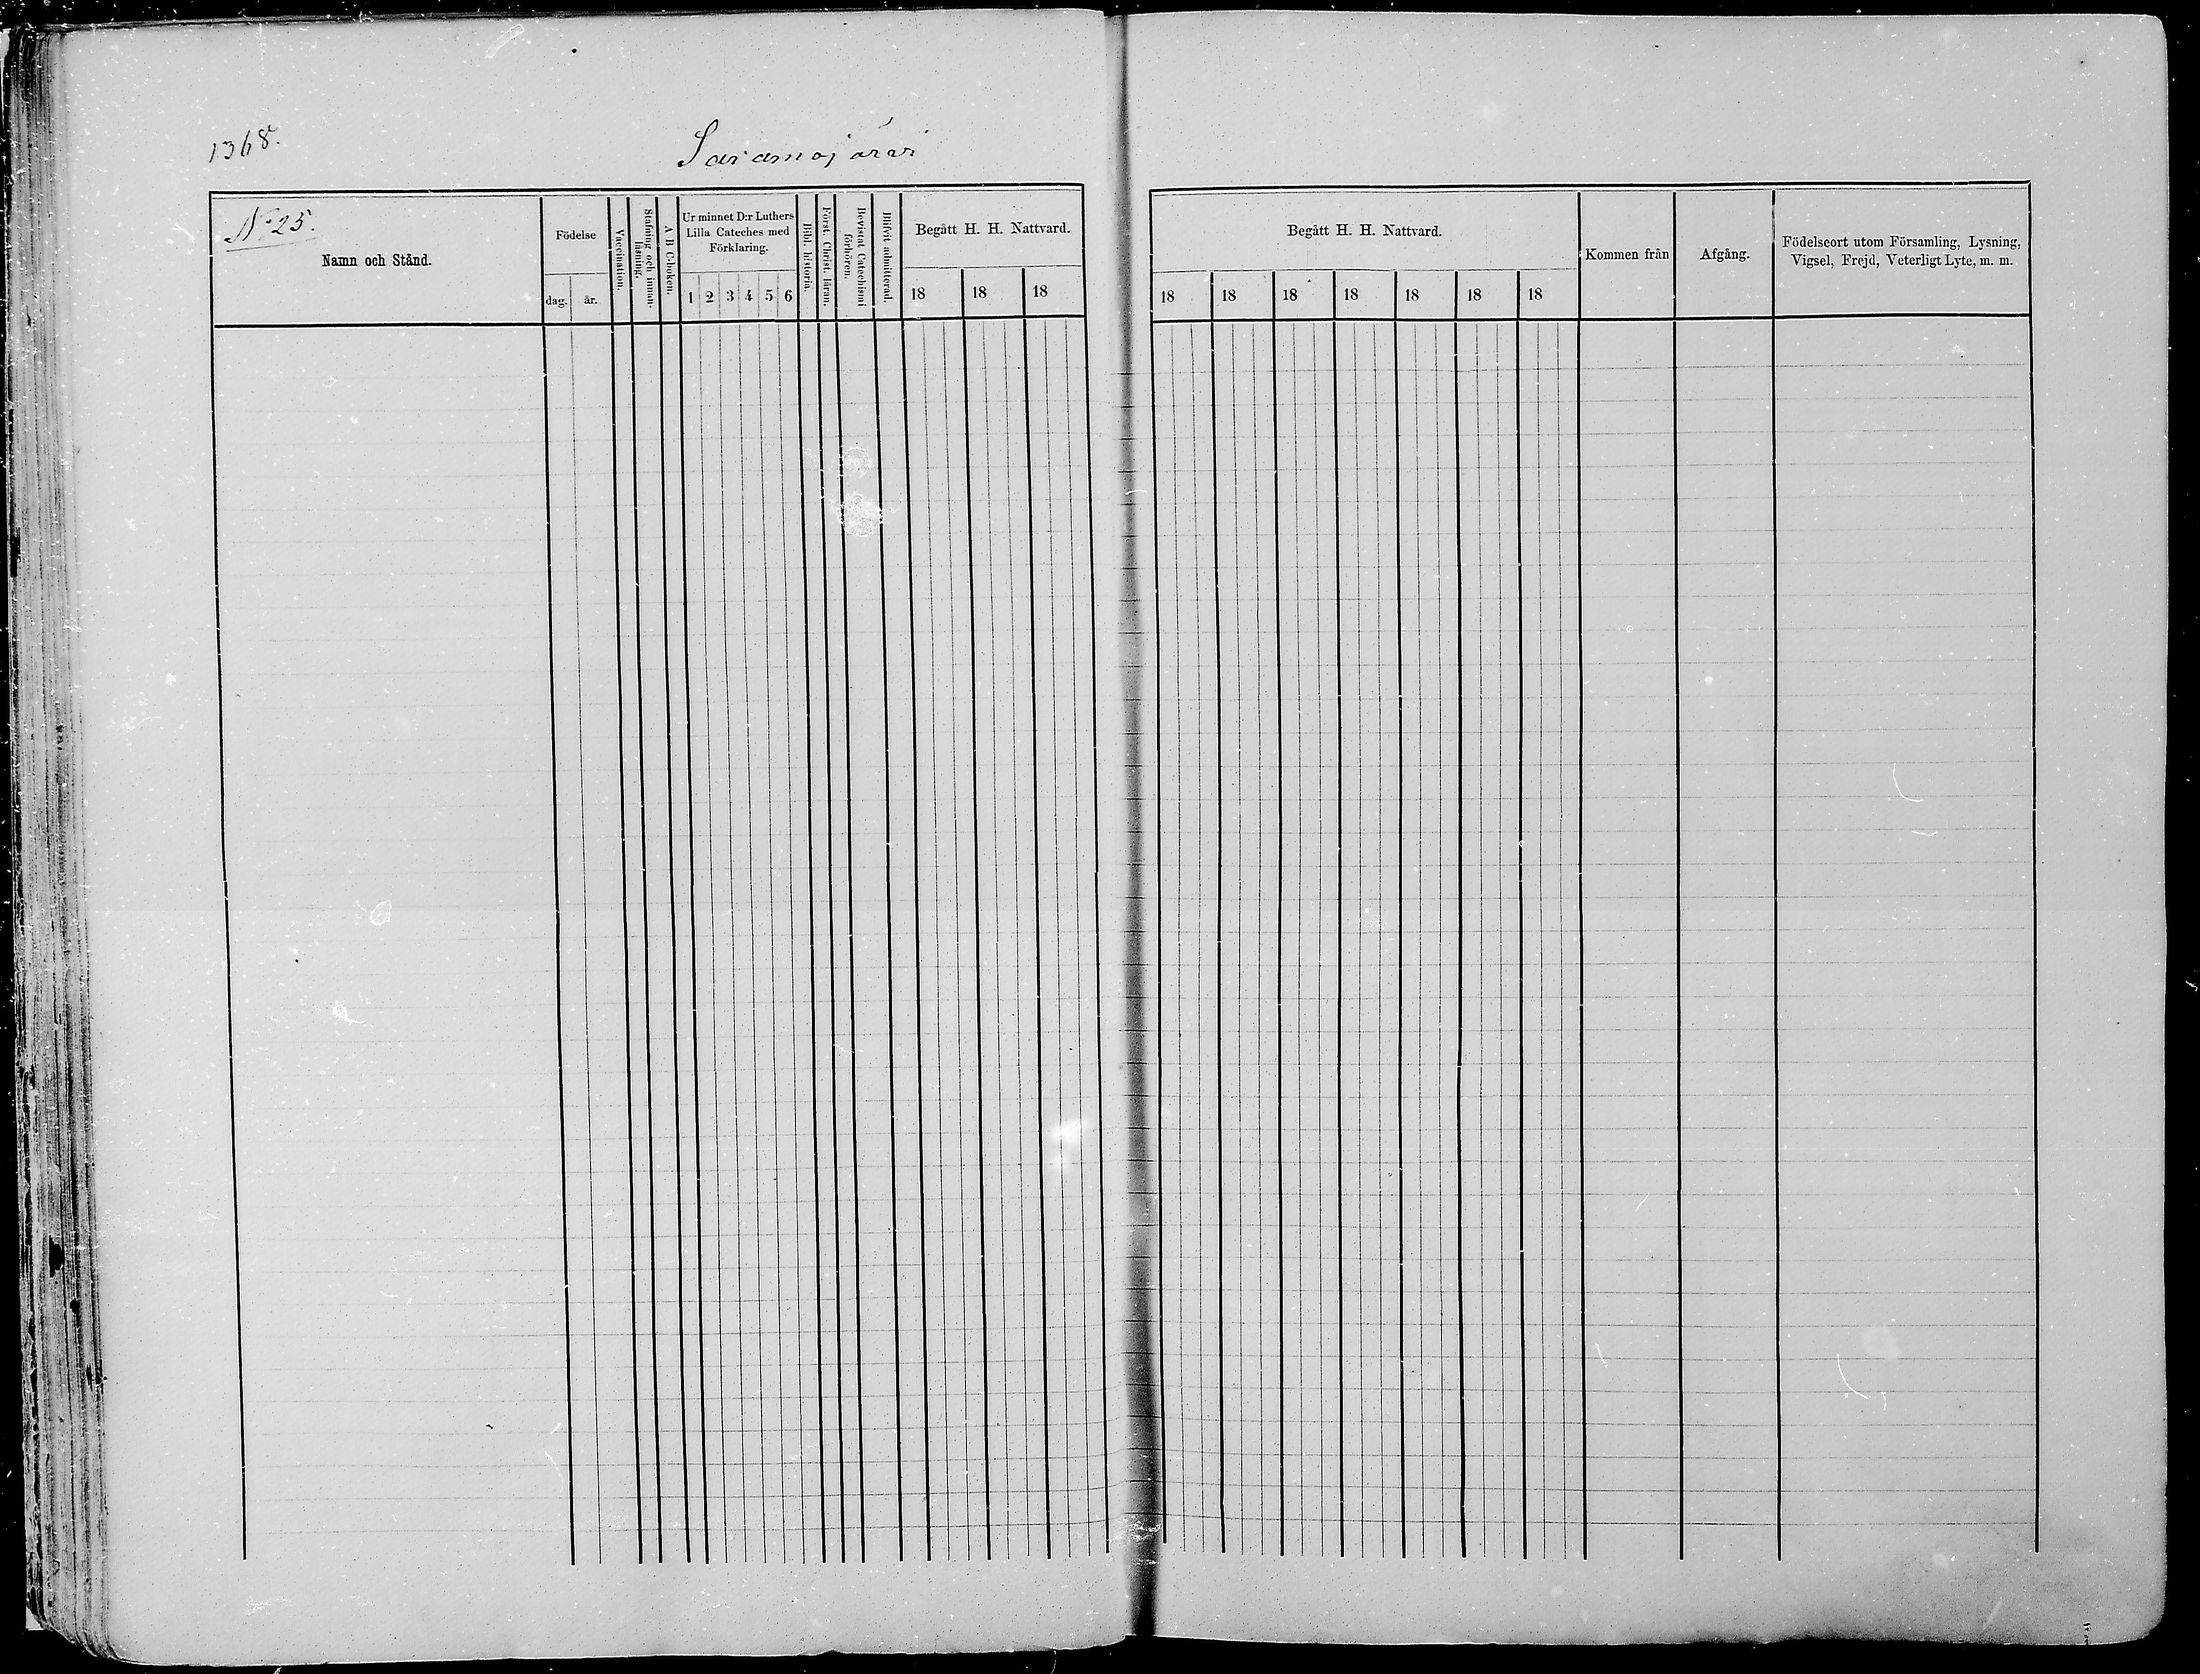 1368.
Saramojärvi
No 25.
Namn och Stånd.
Födelse
dag.
år.
Vaccination.
Stafning och innan-
läsning.
A B C-boken.
Ur minnet D:r Luthers
Lilla Cateches med
Förklaring.
1 2 3 4 5 6
Bibl. historia.
Först. Christ. läran.
Bevistat Catechismi
förhören.
Blifvit admitterad.
Begått H. H. Nattvard.
18 18 18
Begått H. H. Nattvard.
18 18 18 18 18 18 18
Kommen från
Afgång.
Födelseort utom Församling, Lysning,
Vigsel, Frejd, Veterligt Lyte, m. m.